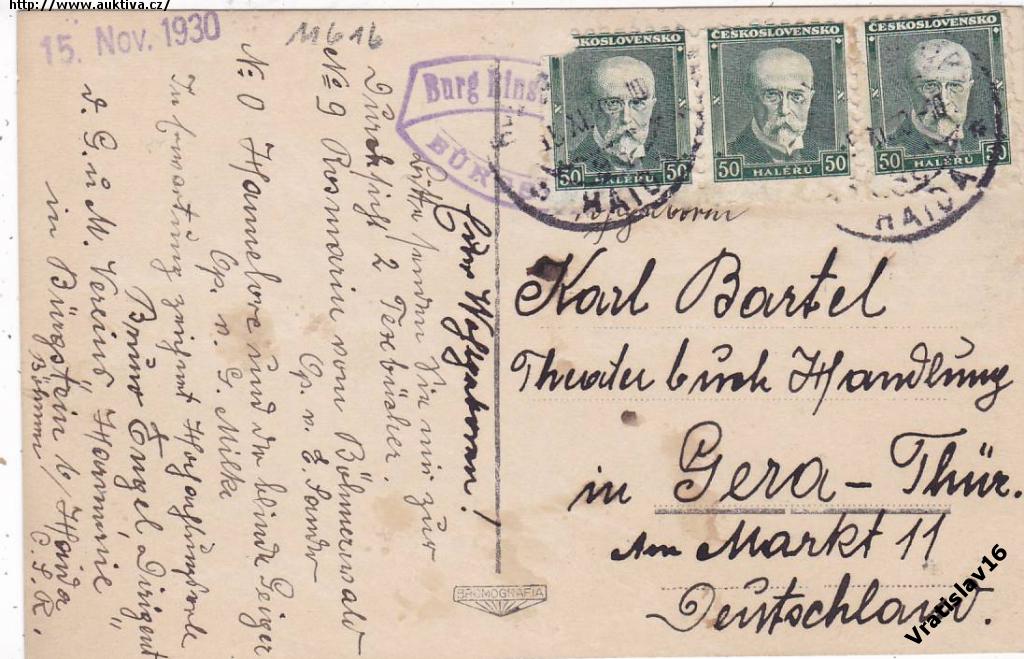 http://www.auktiva.cz/
15. Nov. 1930
11616
Burg Eins
BÜRGS
ČESKOSLOVENSKO
50 50
HALÉRŮ
ČESKOSLOVENSKO
50 50
HALÉRŮ
ČESKOSLOVENSKO
50 50
HALÉRŮ
HAIDA
HAIDA
Euer Wohlgeboren!
Bitte senden Sie mir zur
Durchsicht 2 Texbücher.
No 9 Rosmarin von Böhmerwald
Op. v. E. Sandro
No: 0 Hannelore und der blinde Geiger
Op. v. G. Milka
In Erwartung zeichnet Hochachtungsvoll
Bruno Engel, Dirigent
d. G. u. M. Vereins „Harmonie"
in Bürgstein b/Haida
Böhmen Č. S. R.
Wohlgeboren
Karl Bartel
Theater buch Handlung
in Gera – Thür.
Am Markt 11
Deutschland.
BROMOGRAFIA
Vratislav16